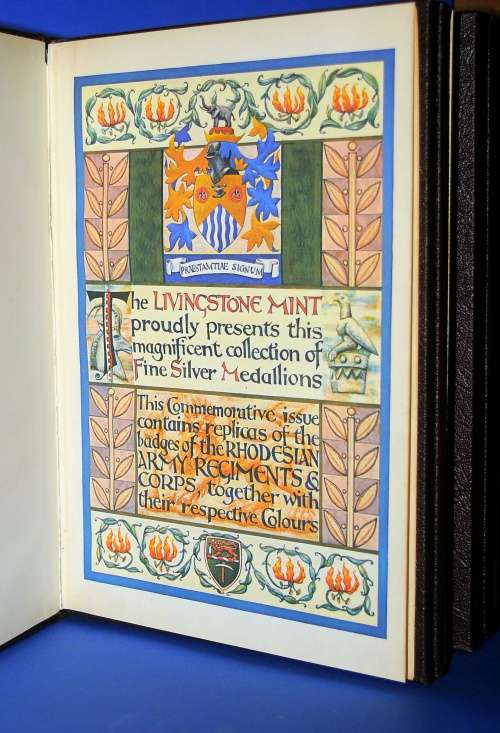 PRAESTAMTIAE SIGNUM
The LIVINGSTONE MINT
proudly presents this
magnificent collection of
Fine Silver Medallions
This Commemorative issue
contains replicas of the
badges of the RHODESIAN
ARMY REGIMENTS &
CORPS, together with
their respective Colours